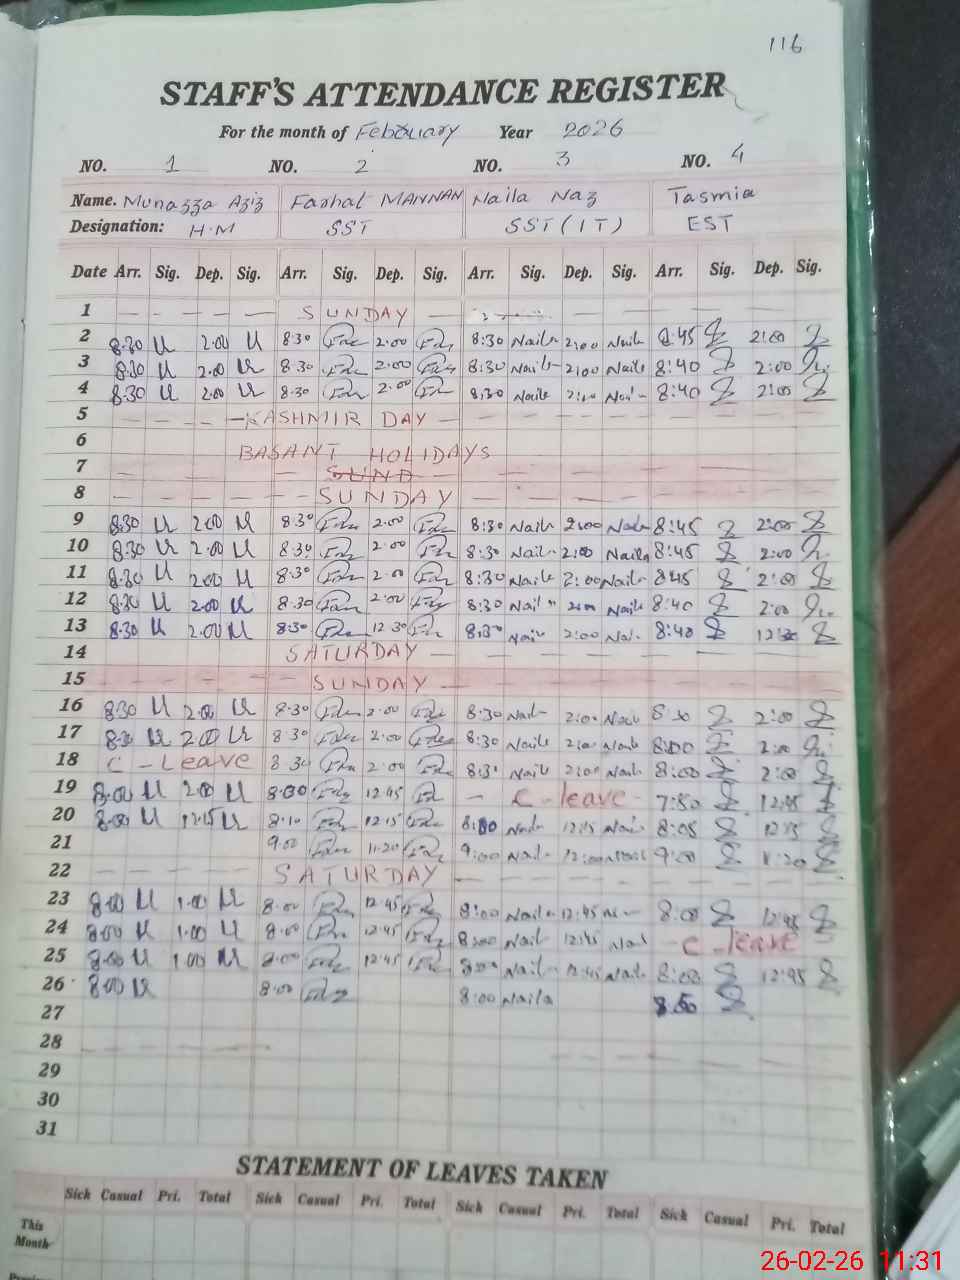 116
STAFF'S ATTENDANCE REGISTER
For the month of February Year 2026
NO. 1 NO. 2 NO. 3 NO. 4
Name. Munazza Aziz Farhat MANNAN Naila Naz Tasmia
Designation: H.M SST SST (IT) EST
Date Arr. Sig. Dep. Sig. Arr. Sig. Dep. Sig. Arr. Sig. Dep. Sig. Arr. Sig. Dep. Sig.
1 SUNDAY
2 8:30 2.00 8:30 2.00 8:30 Naila 2:00 Naila 8:45 2:00
3 8:30 2.00 8:30 2.00 8:30 Naila 2:00 Naila 8:40 2:00
4 8:30 2.00 8:30 2.00 8:30 Naila 2:00 8:40 2:00
5 KASHMIR DAY
6 BASANT HOLIDAYS
7
8 SUNDAY
9 8:30 2.00 8:30 2.00 8:30 Naila 2:00 Naila 8:45 2:00
10 8:30 2.00 8:30 2.00 8:30 Naila 2:00 Naila 8:45 2:00
11 8:30 2.00 8:30 2.00 8:30 Naila 2:00 Naila 8:45 2:00
12 8:30 2.00 8:30 2.00 8:30 Naila 2:00 Naila 8:40 2:00
13 8:30 2.00 8:30 12.30 8:30 Naila 2:00 8:40 12:30
14 SATURDAY
15 SUNDAY
16 8:30 2.00 8:30 2.00 8:30 Naila 2:00 Naila 8:30 2:00
17 8:30 2.00 8:30 2.00 8:30 Naila 2:00 Naila 8:00 2:00
18 C - Leave 8:30 2.00 8:30 Naila 2:00 Naila 8:00 2:00
19 8:00 2.00 8:30 12.45 C - leave 7:50 12:45
20 8:00 12:15 8:10 12.15 8:00 12:15 8:05 12:15
21 9.00 11.20 9:00 Naila 12:00 9:00 11:20
22 SATURDAY
23 8:00 1.00 8:00 12.45 8:00 Naila 12:45 8:00 12:45
24 8:00 1.00 8:00 12.45 8:00 Naila 12:45 C - leave
25 8:00 1.00 8:00 12.45 8:00 Naila 12:45 Naila 8:00 12:45
26 8:00 8:00 8:00 Naila 8:50
27
28
29
30
31
STATEMENT OF LEAVES TAKEN
Sick Casual Pri. Total Sick Casual Pri. Total Sick Casual Pri. Total Sick Casual Pri. Total
This
Month
26-02-26 11:31